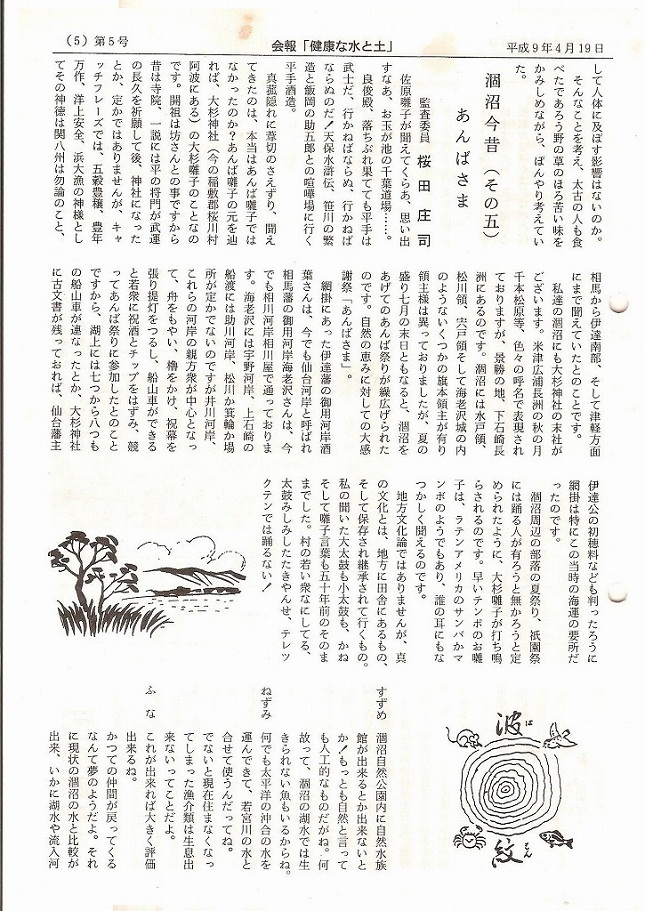 (5) 第5号
会報「健康な水と土」
平成9年4月19日
して人体に及ぼす影響はないのか。
そんなことを考え、太古の人も食
べたであろう野の草のほろ苦い味を
かみしめながら、ぼんやり考えてい
た。
涸沼今昔（その五）
あんばさま
監査委員 桜田庄司
佐原囃子が聞えてくらあ、思い出
すなあ、お玉が池の千葉道場……。
良後殿、落ちぶれ果てても平手は
武士だ、行かねばならぬ、行かねば
ならぬのだ！天保水滸伝、笹川の繁
造と飯岡の助五郎との喧嘩場に行く
平手酒造。
真菰隠れに葦切のさえずり、聞え
てきたのは、本当はあんば囃子では
なかったのか？あんば囃子の元を辿
れば、大杉神社（今の稲敷郡桜川村
阿波にある）の大杉囃子のことなの
です。開祖は坊さんとの事ですから
昔は寺院、一説には平の将門が武運
の長久を祈願して後、神社になった
とか、定かではありませんが、キャ
ッチフレーズでは、五穀豊穣、豊年
万作、洋上安全、浜大漁の神様とし
てその神徳は関八州は勿論のこと、
相馬から伊達南部、そして津軽方面
にまで聞えていたとのことです。
私達の涸沼にも大杉神社の末社が
ございます。米津広浦長洲の秋の月
千本松原等、色々の呼名で表現され
ておりますが、景勝の地、下石崎長
洲にあるのです。涸沼には水戸領、
松川領、宍戸領そして海老沢城の内
のようないくつかの旗本領主が有り
領主様は異っておりましたが、夏の
盛り七月の末日ともなると、涸沼を
あげてのあんば祭りが繰広げられた
のです。自然の恵みに対しての大感
謝祭「あんばさま」。
網掛にあった伊達藩の御用河岸酒
葉さんは、今でも仙台河岸と呼ばれ
相馬藩の御用河岸海老沢さんは、今
でも相川河岸相川屋で通っておりま
す。海老沢には宇野河岸、上石崎の
船渡には助川河岸、松川か箕輪か場
所が定かでないのですが井川河岸、
これらの河岸の親方衆が中心となっ
て、舟をもやい、櫓をかけ、祝幕を
張り提灯をつるし、船山車ができる
と若衆に祝酒とチップをはずみ、競
ってあんば祭りに参加したとのこと
ですから、湖上には七つから八つも
の船山車が連なったとか、大杉神社
に古文書が残っておれば、仙台藩主
伊達公の初穂料なども判ったろうに
網掛は特にこの当時の海運の要所だ
ったのです。
涸沼周辺の部落の夏祭り、祇園祭
には踊る人が有ろうと無かろうと定
められたように、大杉囃子が打ち鳴
らされるのです。早いテンポのお囃
子は、ラテンアメリカのサンバかマ
ンボのようでもあり、誰の耳にもな
つかしく聞えるのです。
地方文化論ではありませんが、真
の文化とは、地方に田舎にあるもの、
そして保存され継承されて行くもの。
私の聞いた大太鼓も小太鼓も、かね
そして囃子言葉も五十年前のそのま
までした。村の若い衆なにしてる、
太鼓みしみしたたきやんせ、テレツ
クテンでは踊るない！
波
は
紋
もん
すずめ 涸沼自然公園内に自然水族
館が出来るとか出来ないと
か！もっとも自然と言って
も人工的なものだがね。何
故って、涸沼の湖水では生
きられない魚もいるからね。
ねずみ 何でも太平洋の沖合の水を
運んできて、若宮川の水と
合せて使うんだってね。
でないと現在住まなくなっ
てしまった漁介類は生息出
来ないってことだよ。
ふな これが出来れば大きく評価
出来るね。
かつての仲間が戻ってくる
なんて夢のようだよ。それ
に現状の涸沼の水と比較が
出来、いかに湖水や流入河